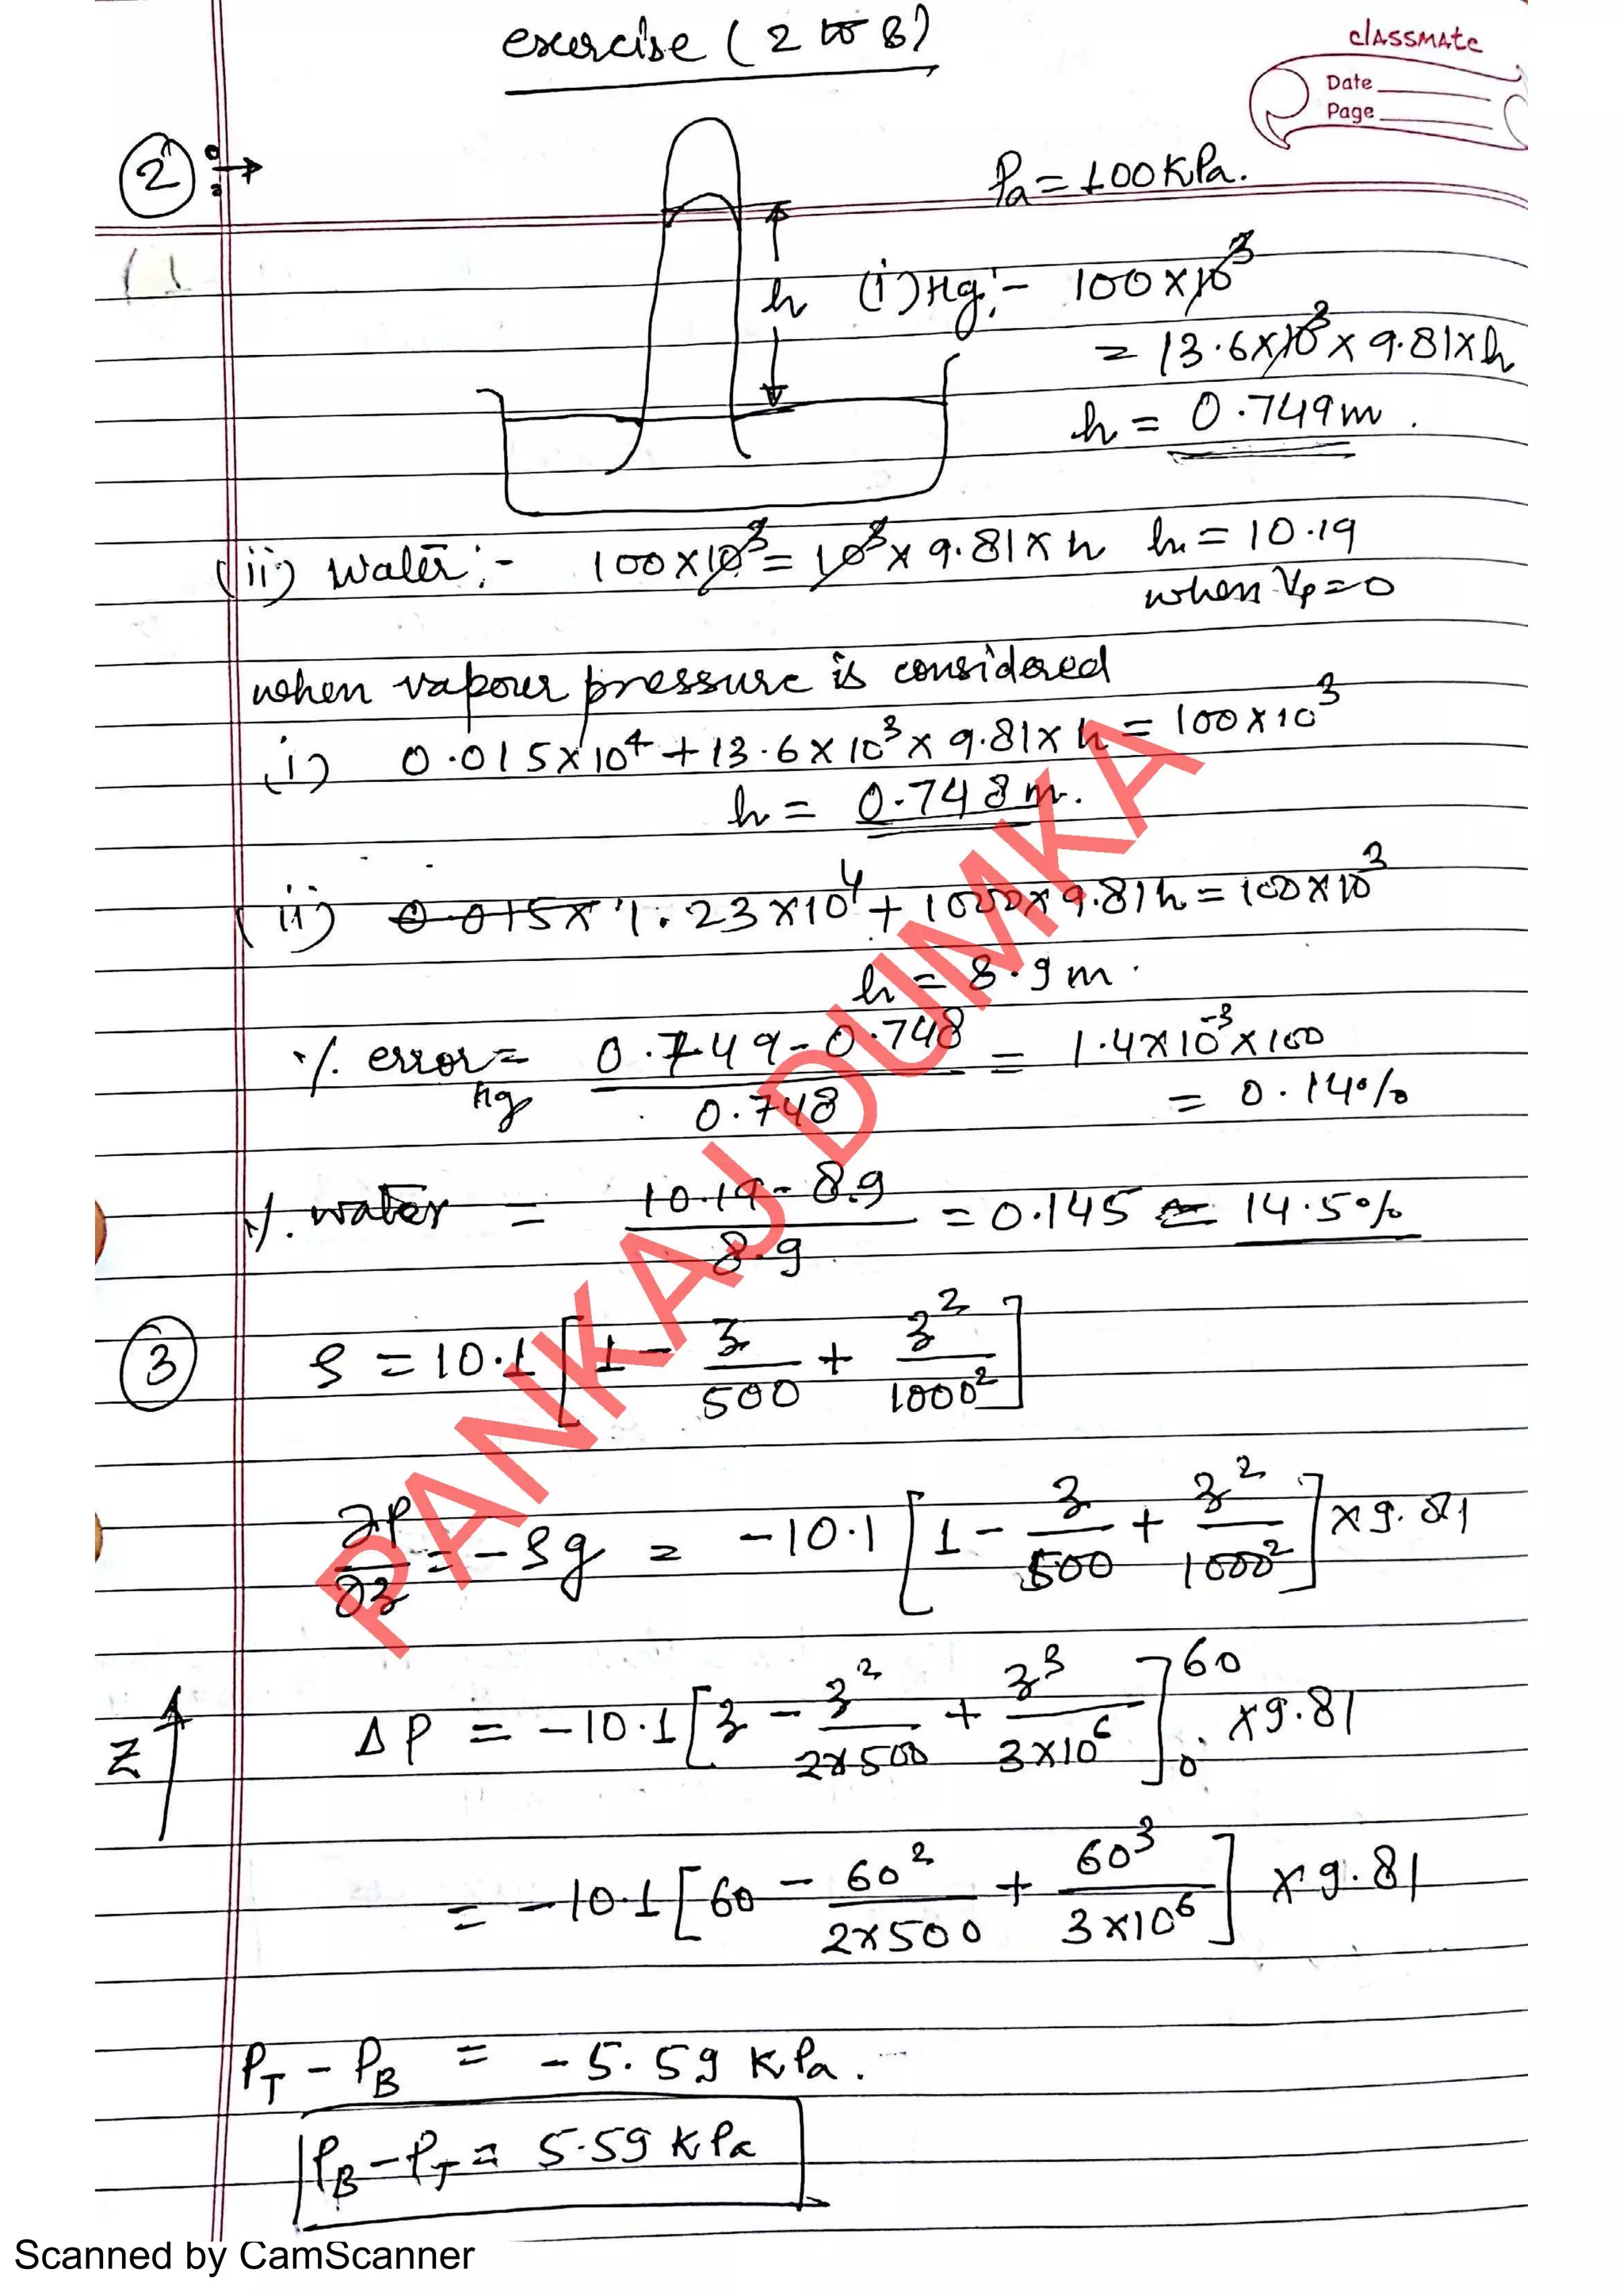 exercise (2 to 8)
classmate
Date
Page
2 :→
Pa = 100 KPa.
h
(i) Hg :- 100 × 10³
= 13.6 × 10³ × 9.81 × h
h = 0.749 m.
(ii) Water :- 100 × 10³ = 10³ × 9.81 × h h = 10.19
when Vp = 0
when vapour pressure is considered
i) 0.015 × 10⁴ + 13.6 × 10³ × 9.81 × h = 100 × 10³
h = 0.748 m.
(ii) 0.015 × 1.23 × 10⁴ + 1000 × 9.81 h = 100 × 10³
h = 8.9 m.
% error Hg = (0.749 - 0.748) / 0.748 = 1.4 × 10⁻³ × 100
= 0.14%
% water = (10.19 - 8.9) / 8.9 = 0.145 ≃ 14.5%
3 ρ = 10.1 [1 - z/500 + z²/1000²]
∂P/∂z = -ρg = -10.1 [1 - z/500 + z²/1000²] × 9.81
z
ΔP = -10.1 [z - z²/(2×500) + z³/(3×10⁶)]₀⁶⁰ × 9.81
= -10.1 [60 - 60²/(2×500) + 60³/(3×10⁶)] × 9.81
P_T - P_B = -5.59 KPa.
P_B - P_T = 5.59 KPa
PANKAJ DUMKA
Scanned by CamScanner